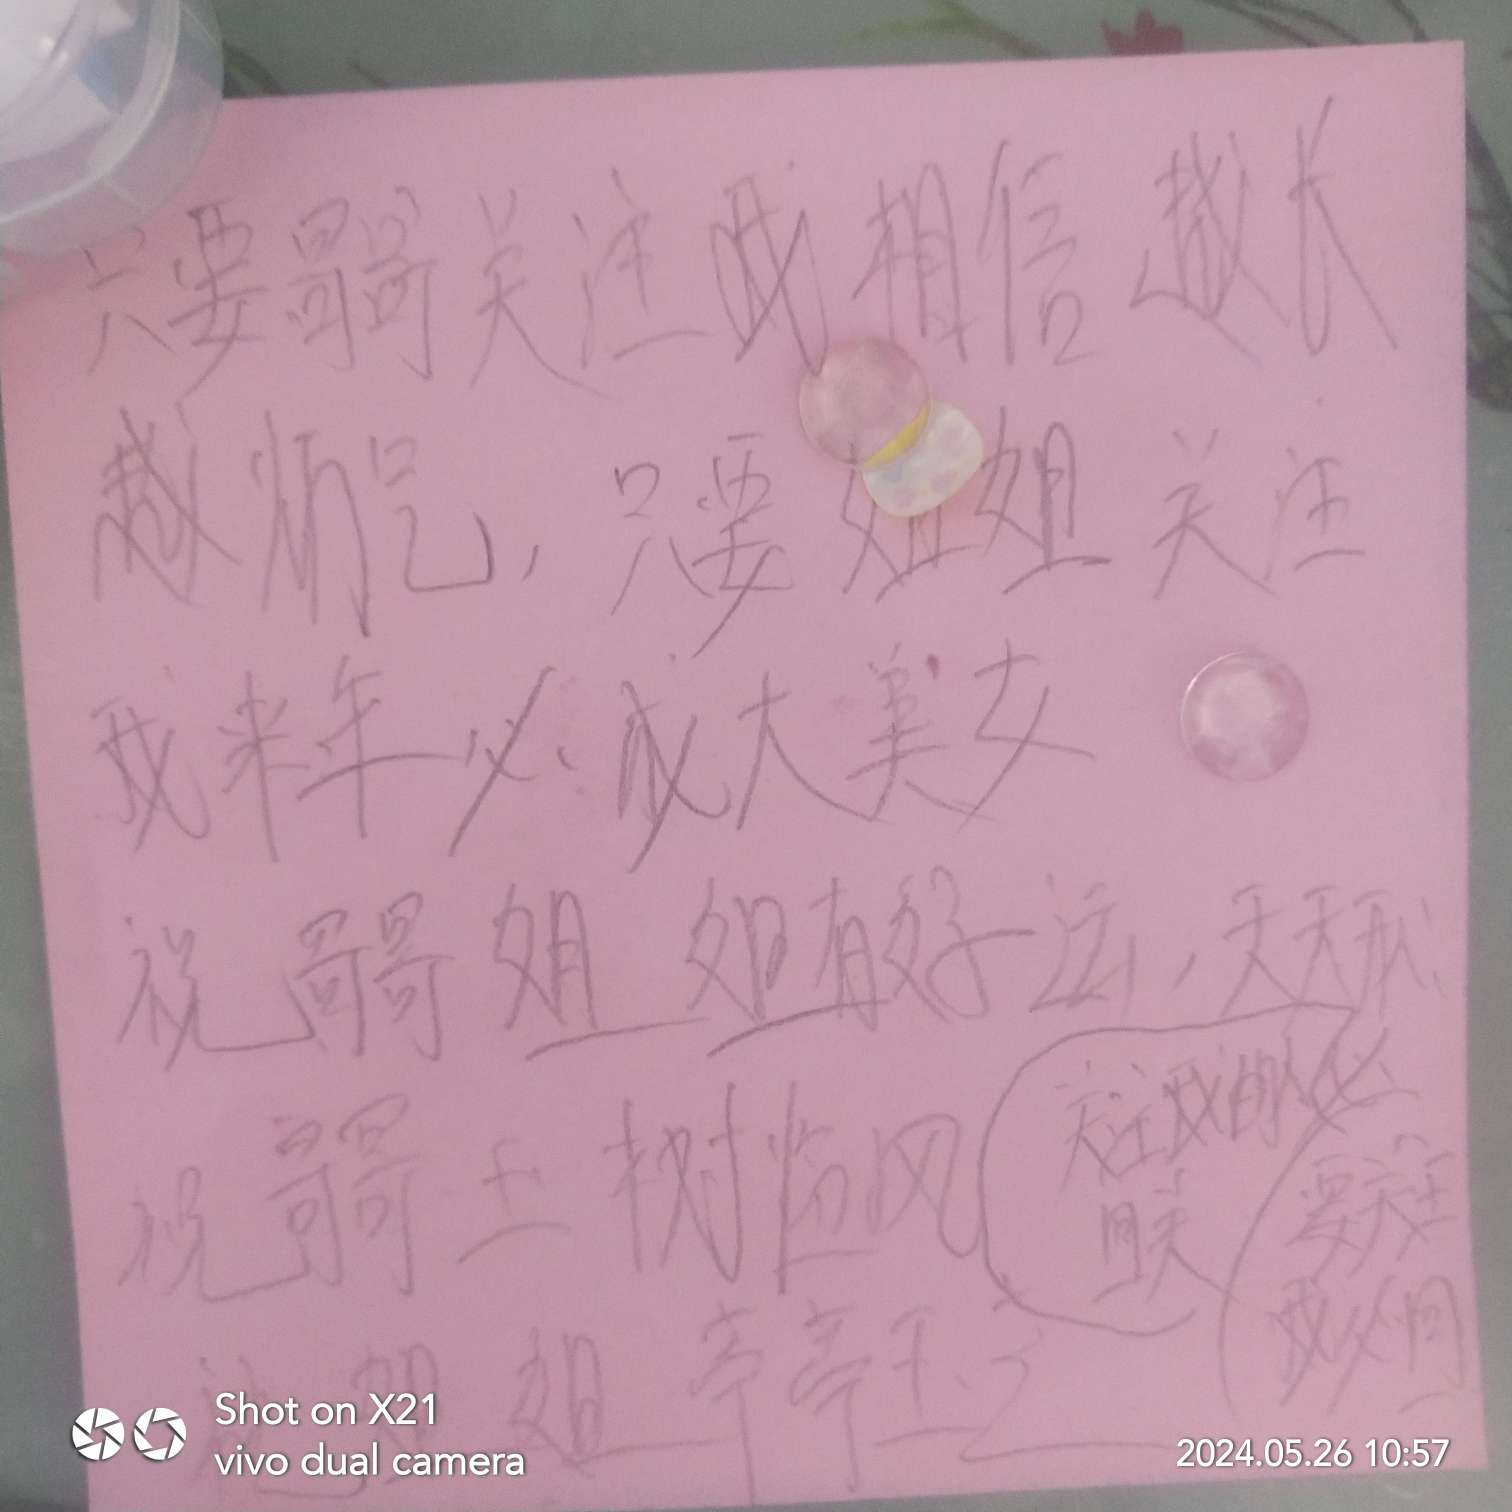 只要哥哥关注我相信越长
越炳乞，只要姐姐关注
我来年必成大美女
祝哥哥姐姐有好运，天天开心
祝哥哥玉树临风
关注我的必
回关
要关注
我必回
祝姐姐亭亭玉立
Shot on X21
vivo dual camera
2024.05.26 10:57